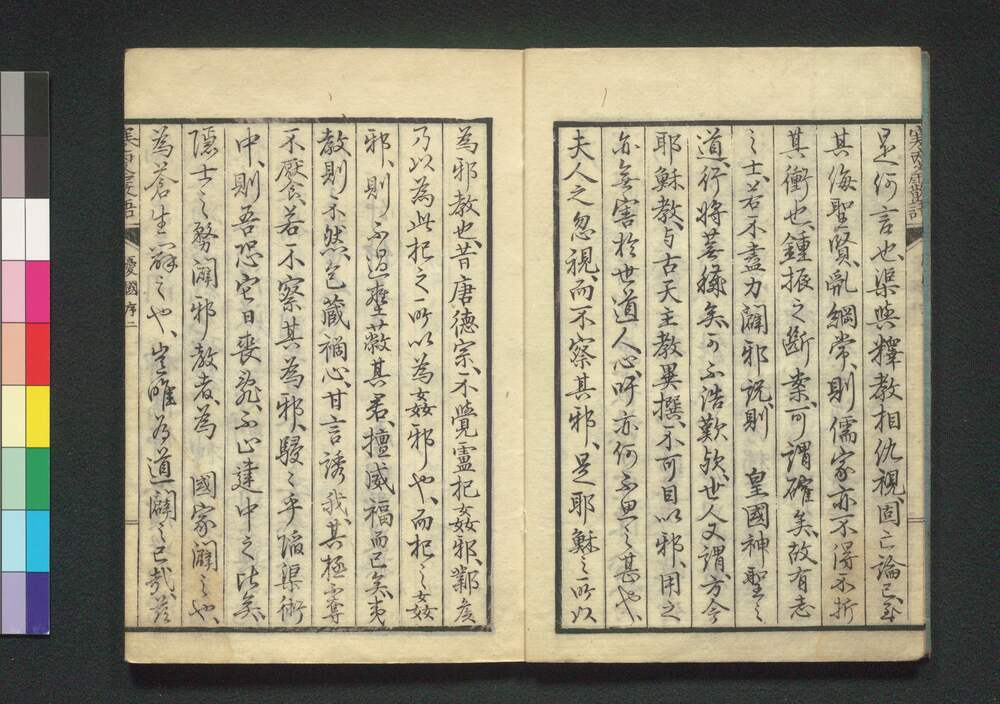 是何言也、渠與釋教相仇視、固亡論已、至
其侮聖賢、亂綱常、則儒家亦不得不折
其衝也、鍾振之斷案、可謂確矣、故有志
之士、若不盡力闢邪説、則 皇國神聖之
道、行將蕪穢矣、可不浩歎歟、世人又謂、方今
耶穌教、与古天主教異撰、不可目以邪、用之
亦無害於世道人心、吁亦何不思之甚也、
夫人之忽視、而不察其邪、是耶穌之所以
為邪教也、昔唐德宗、不覺盧杞姦邪、鄴侯
乃以為此杞之所以為姦邪也、而杞之姦
邪、則不過壅蔽其君、擅威福而已矣、夷
教則不然、包藏禍心、甘言誘我、其極不奪
不厭、人若不察其為邪、駸々乎陷渠術
中、則吾恐它日喪亂、不止建中之比矣、
隱士之務闢邪教者、為 國家闢之也、
為蒼生闢之也、豈唯為道闢之已哉、
憂國 序 二